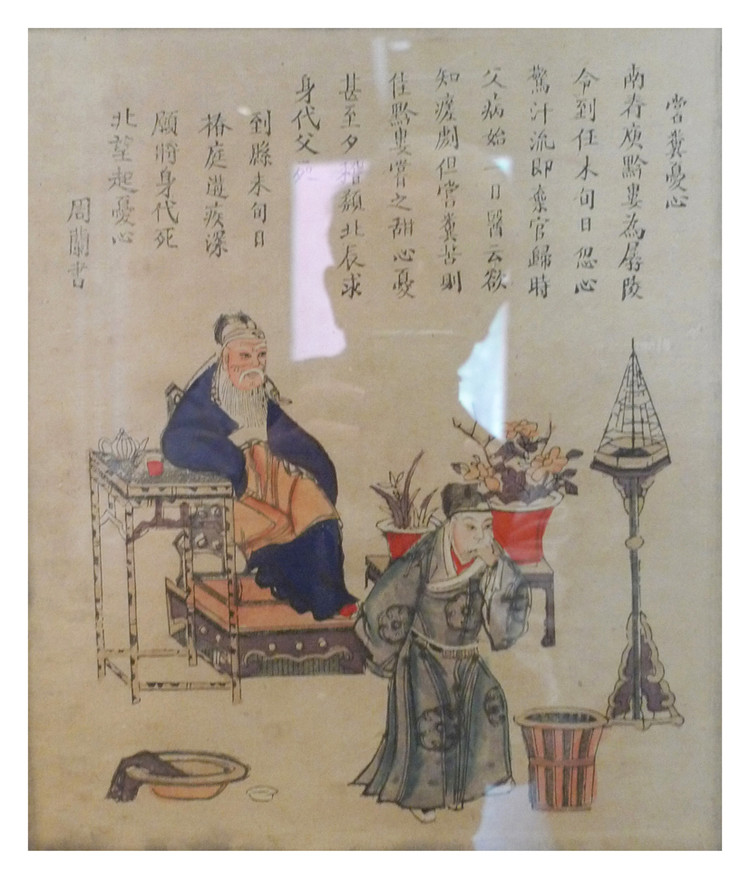 嘗糞憂心
南齊庾黔婁為孱陵
令到任未旬日忽心
驚汗流即棄官歸時
父病始日醫云欲
知瘥劇但嘗糞苦則
佳黔婁嘗之甜心憂
甚至夕稽顙北辰求
身代父死
到縣未旬日
椿庭遺疾深
願將身代死
北望起憂心
周蘭書